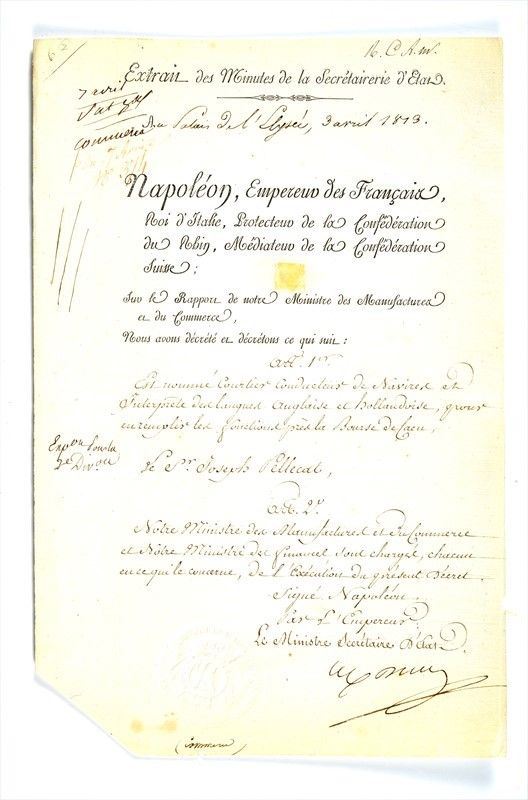 R. C. A. M.
Extrait des Minutes de la Secrétairerie d'Etat.
7 avril
commerce
Au Palais de l'Elysée, 3 avril 1813.
Napoléon, Empereur des Français,
Roi d'Italie, Protecteur de la Confédération
du Rhin, Médiateur de la Confédération
Suisse;
Sur le Rapport de notre Ministre des Manufactures
et du Commerce,
Nous avons décrété et décrétons ce qui suit:
Art. 1er.
Est nommé Courtier Conducteur de Navires et
Interprète des langues Anglaise et hollandoise, pour
en remplir les fonctions près la Bourse de Caen,
Le Sr. Joseph Pellecat,
Art. 2e.
Notre Ministre des Manufactures et du Commerce
et Notre Ministre des finances sont chargés, chacun
en ce qui le concerne, de l'Exécution du présent Décret.
Signé Napoléon.
Par l'Empereur,
Le Ministre Secrétaire d'Etat.
(Commerce)